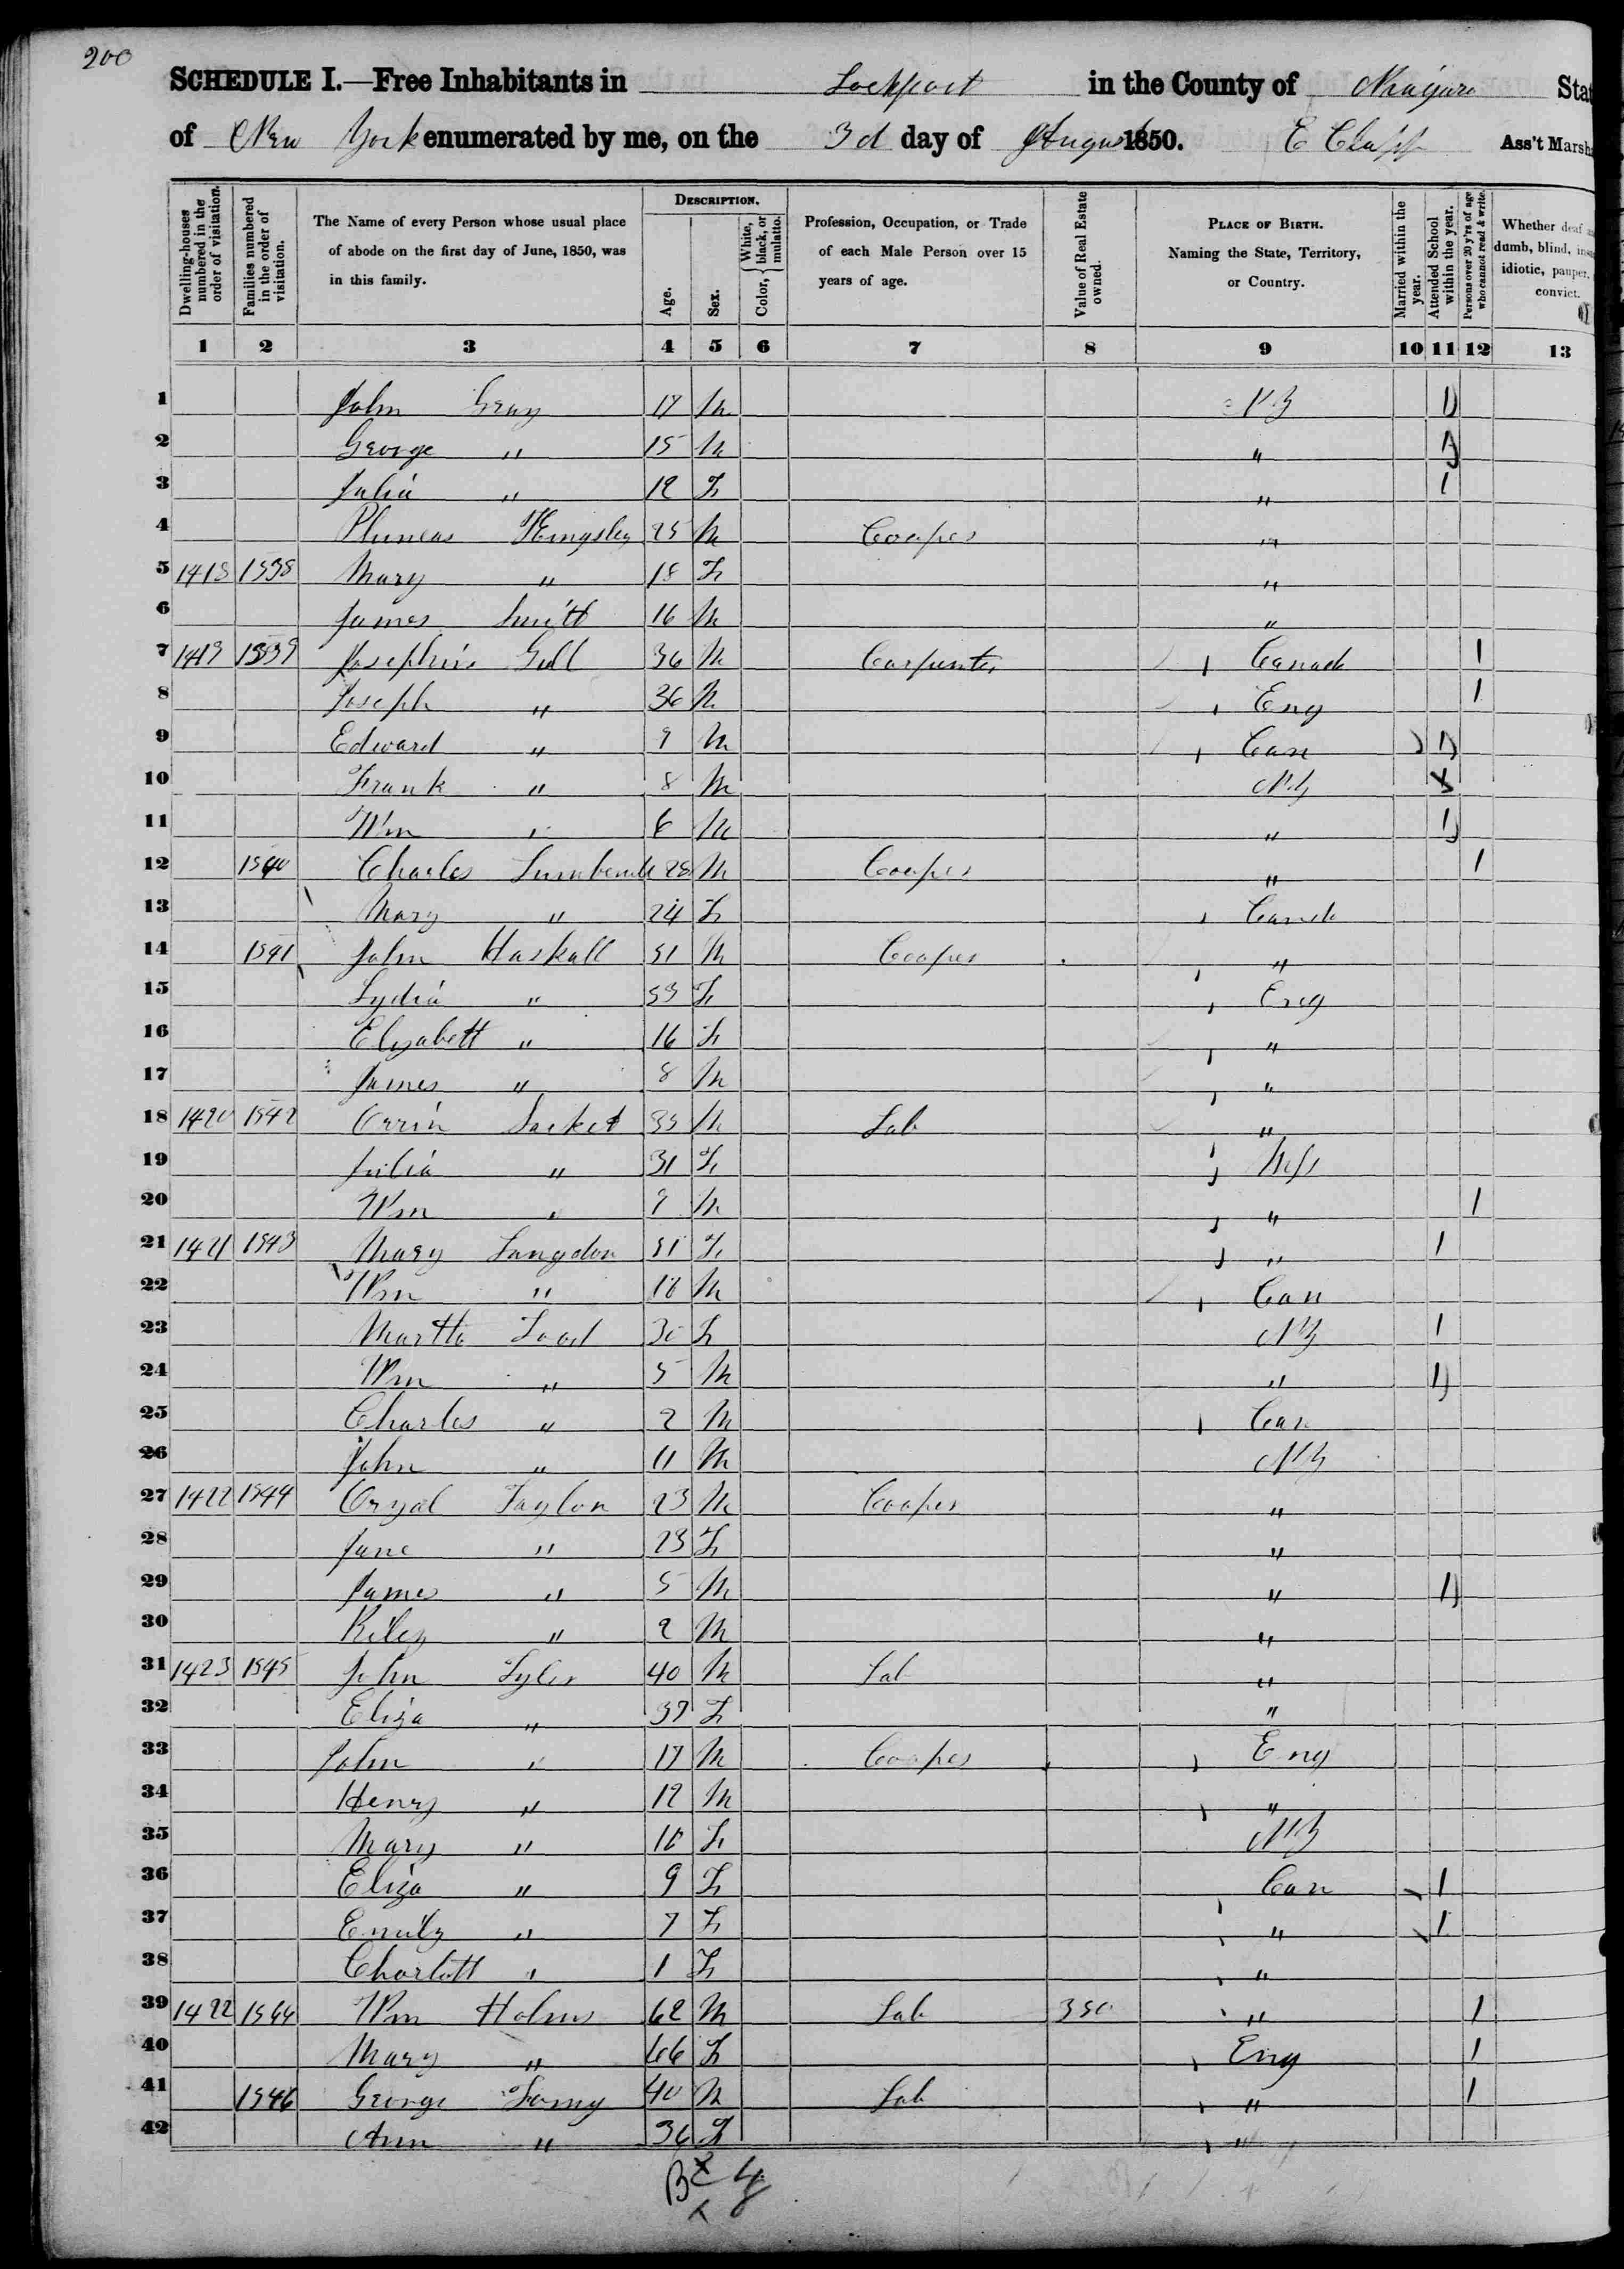 200
SCHEDULE I.—Free Inhabitants in Lockport in the County of Niagara Stat
of New York enumerated by me, on the 3d day of August 1850. E Clapp Ass't Marsha
Dwelling-houses numbered in the order of visitation.
Families numbered in the order of visitation.
The Name of every Person whose usual place of abode on the first day of June, 1850, was in this family.
DESCRIPTION.
Age.
Sex.
Color, { White, black, or mulatto.
Profession, Occupation, or Trade of each Male Person over 15 years of age.
Value of Real Estate owned.
PLACE OF BIRTH. Naming the State, Territory, or Country.
Married within the year.
Attended School within the year.
Persons over 20 y'rs of age who cannot read & write.
Whether deaf and dumb, blind, insane, idiotic, pauper, convict.
1 2 3 4 5 6 7 8 9 10 11 12 13
1 John Gray 17 M N.Y 1
2 George " 15 M " 1
3 Julia " 12 F " 1
4 Phineas Kingsley 25 M Cooper "
5 1418 1538 Mary " 18 F "
6 James Smith 16 M "
7 1419 1539 Josephine Gill 36 M Carpenter Canada 1
8 Joseph " 36 M Eng 1
9 Edward " 9 M Can 1
10 Frank " 8 M N.Y
11 Wm " 6 M " 1
12 1540 Charles 28 M Cooper " 1
13 Mary " 24 F Canada
14 1541 John Haskall 51 M Cooper "
15 Lydia " 53 F Eng
16 Elizabett " 16 F "
17 James " 8 M "
18 1420 1542 Orrin Sacket 33 M Lab "
19 Julia " 31 F
20 Wm " 9 M " 1
21 1421 1543 Mary Langdon 51 F " 1
22 Wm " 18 M Can
23 Martha 30 F NY 1
24 Wm " 5 M " 1
25 Charles " 2 M Can
26 John " 11 M NY
27 1422 1544 Taylor 23 M Cooper "
28 Jane " 23 F "
29 James " 5 M " 1
30 Riley " 2 M "
31 1423 1545 John Tyler 40 M Lab "
32 Eliza " 37 F "
33 John " 17 M Cooper Eng
34 Henry " 12 M "
35 Mary " 10 F NY
36 Eliza " 9 F Can 1
37 Emily " 7 F " 1
38 Charlott " 1 F "
39 1422 1544 Wm Holms 62 M Lab 350 " 1
40 Mary " 66 F Eng 1
41 1546 George 40 M Lab " 1
42 Ann " 36 F "